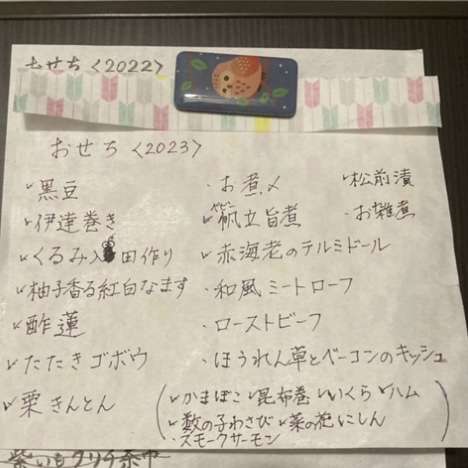 おせち〈2022〉
おせち〈2023〉
✓黒豆
✓伊達巻き
✓くるみ入田作り
✓柚子香る紅白なます
✓酢蓮
✓たたきゴボウ
✓栗きんとん
・お煮〆
✓帆立旨煮
✓赤海老のテルミドール
・和風ミートローフ
・ローストビーフ
・ほうれん草とベーコンのキッシュ
✓松前漬
・お雑煮
(✓かまぼこ ✓昆布巻 ✓いくら ✓ハム
✓数の子わさび ✓菜の花にしん
・スモークサーモン)
紫いも